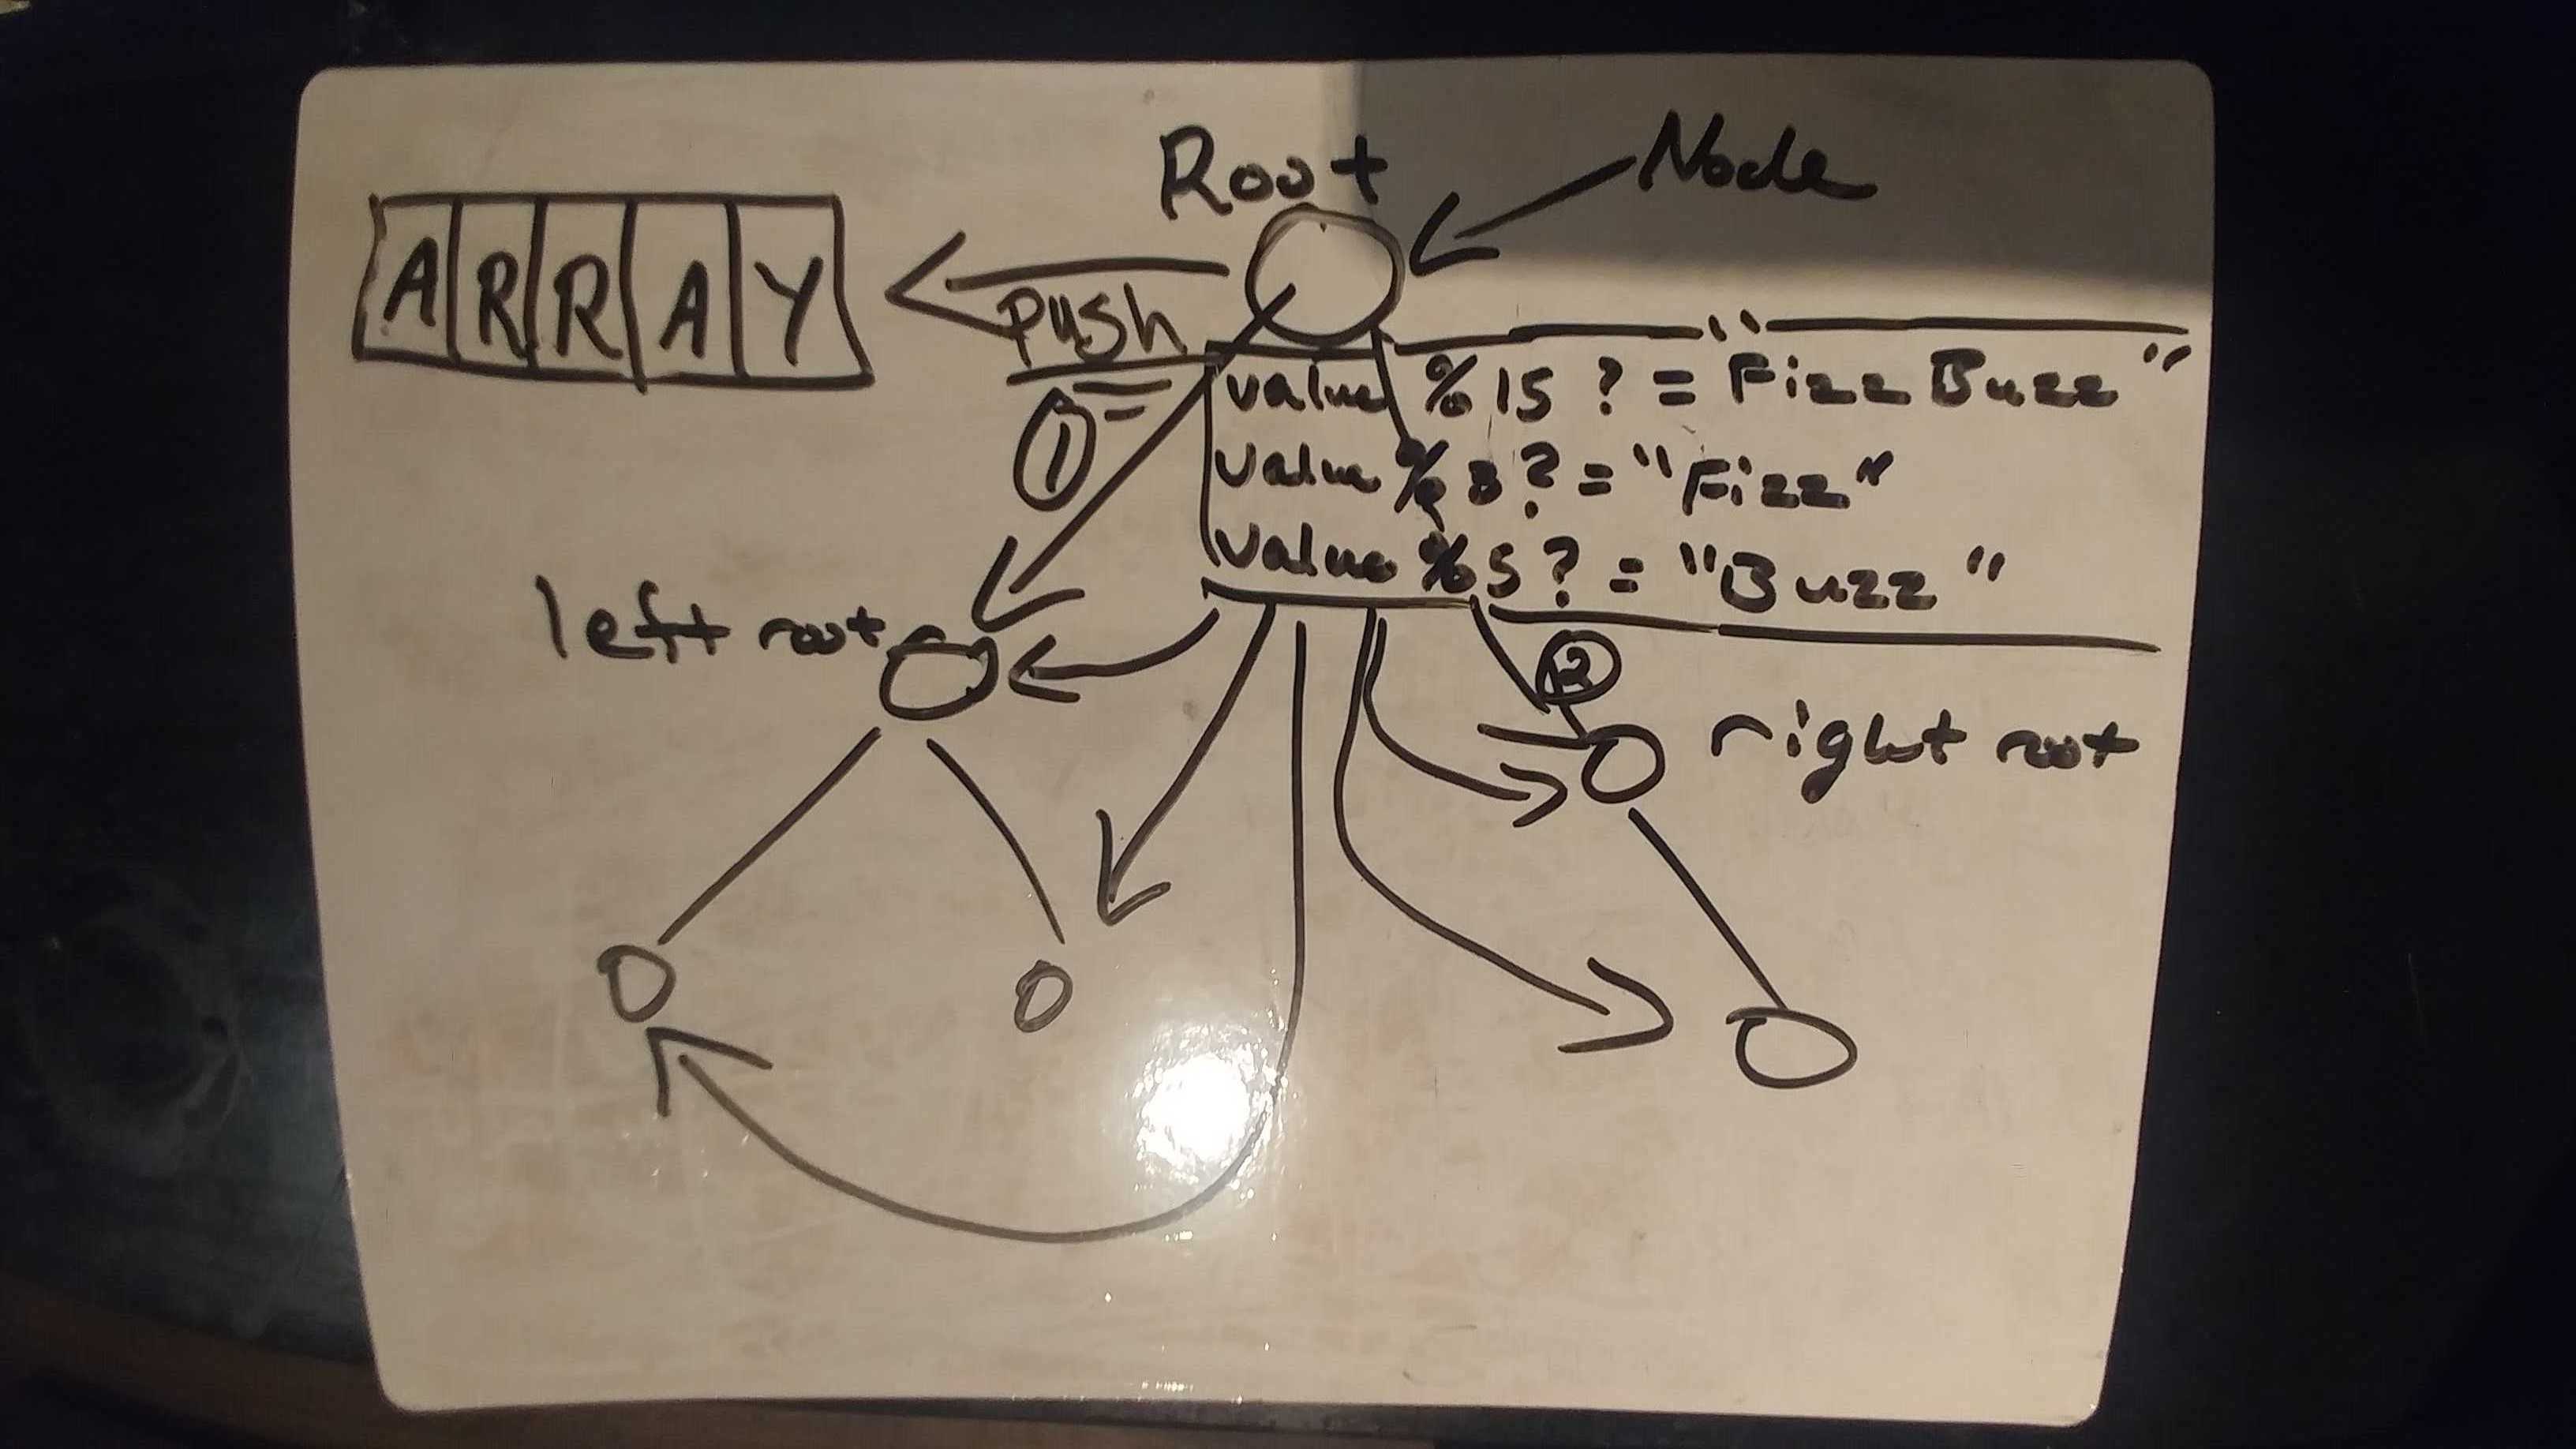 Root
Node
ARRAY
push
value % 15 ? = "Fizz Buzz"
1
value % 3 ? = "Fizz"
value % 5 ? = "Buzz"
left root
2
right root